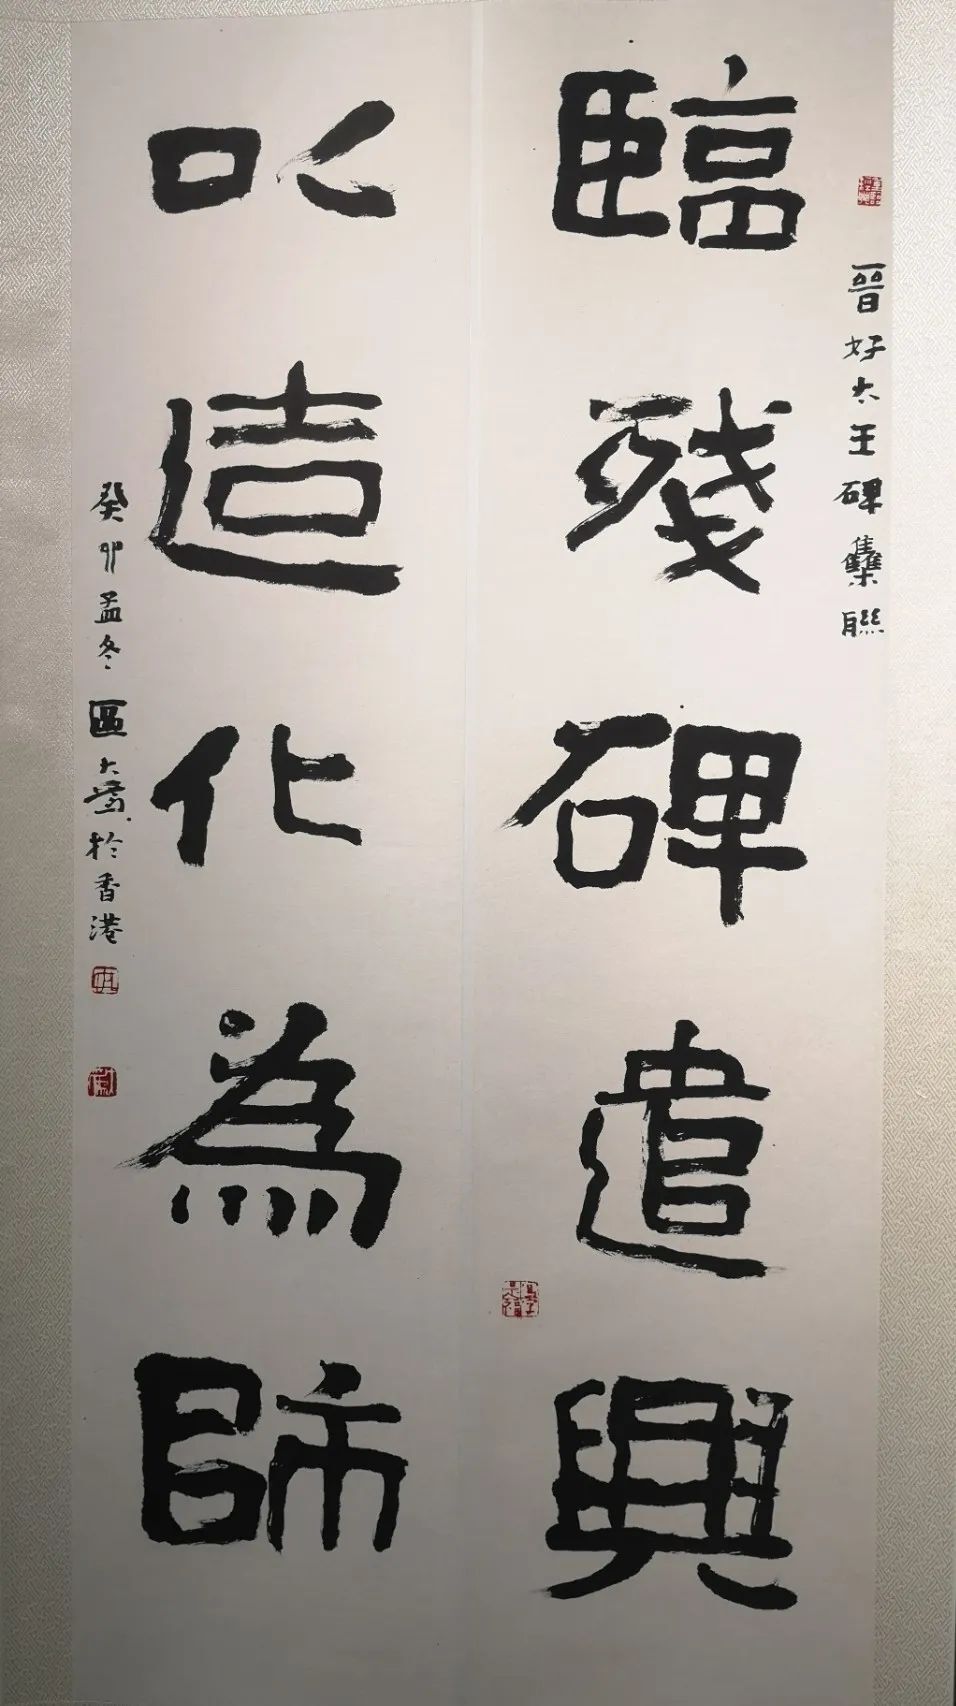 晉好大王碑集聯
臨殘碑遣興
以造化為師
癸卯孟冬區大為於香港